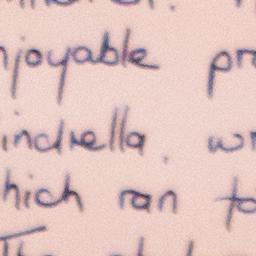 njoyable pr
indrella. wr
hich ran to
The